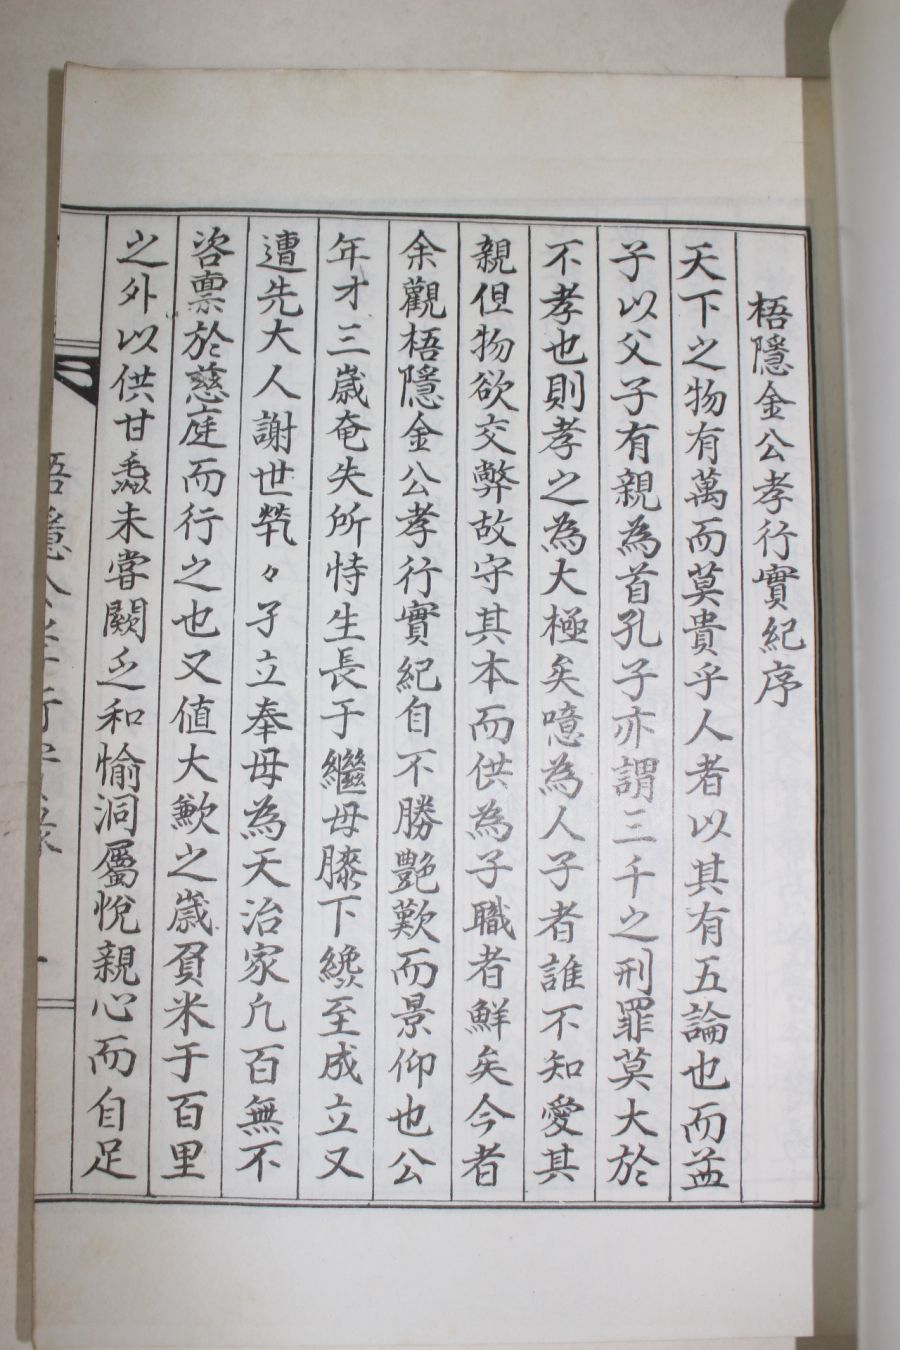 梧隱金公孝行實紀序
天下之物有萬而莫貴乎人者以其有五論也而益
子以父子有親為首孔子亦謂三千之刑罪莫大於
不孝也則孝之為大極矣噫為人子者誰不知愛其
親但物欲交弊故守其本而供為子職者鮮矣今者
余觀梧隱金公孝行實紀自不勝艶歎而景仰也公
年才三歲奄失所恃生長于繼母膝下纔至成立又
遭先大人謝世煢々孑立奉母為天治家凡百無不
咨禀於慈庭而行之也又值大歉之歲負米于百里
之外以供甘毳未嘗闕乏和愉洞屬悅親心而自足